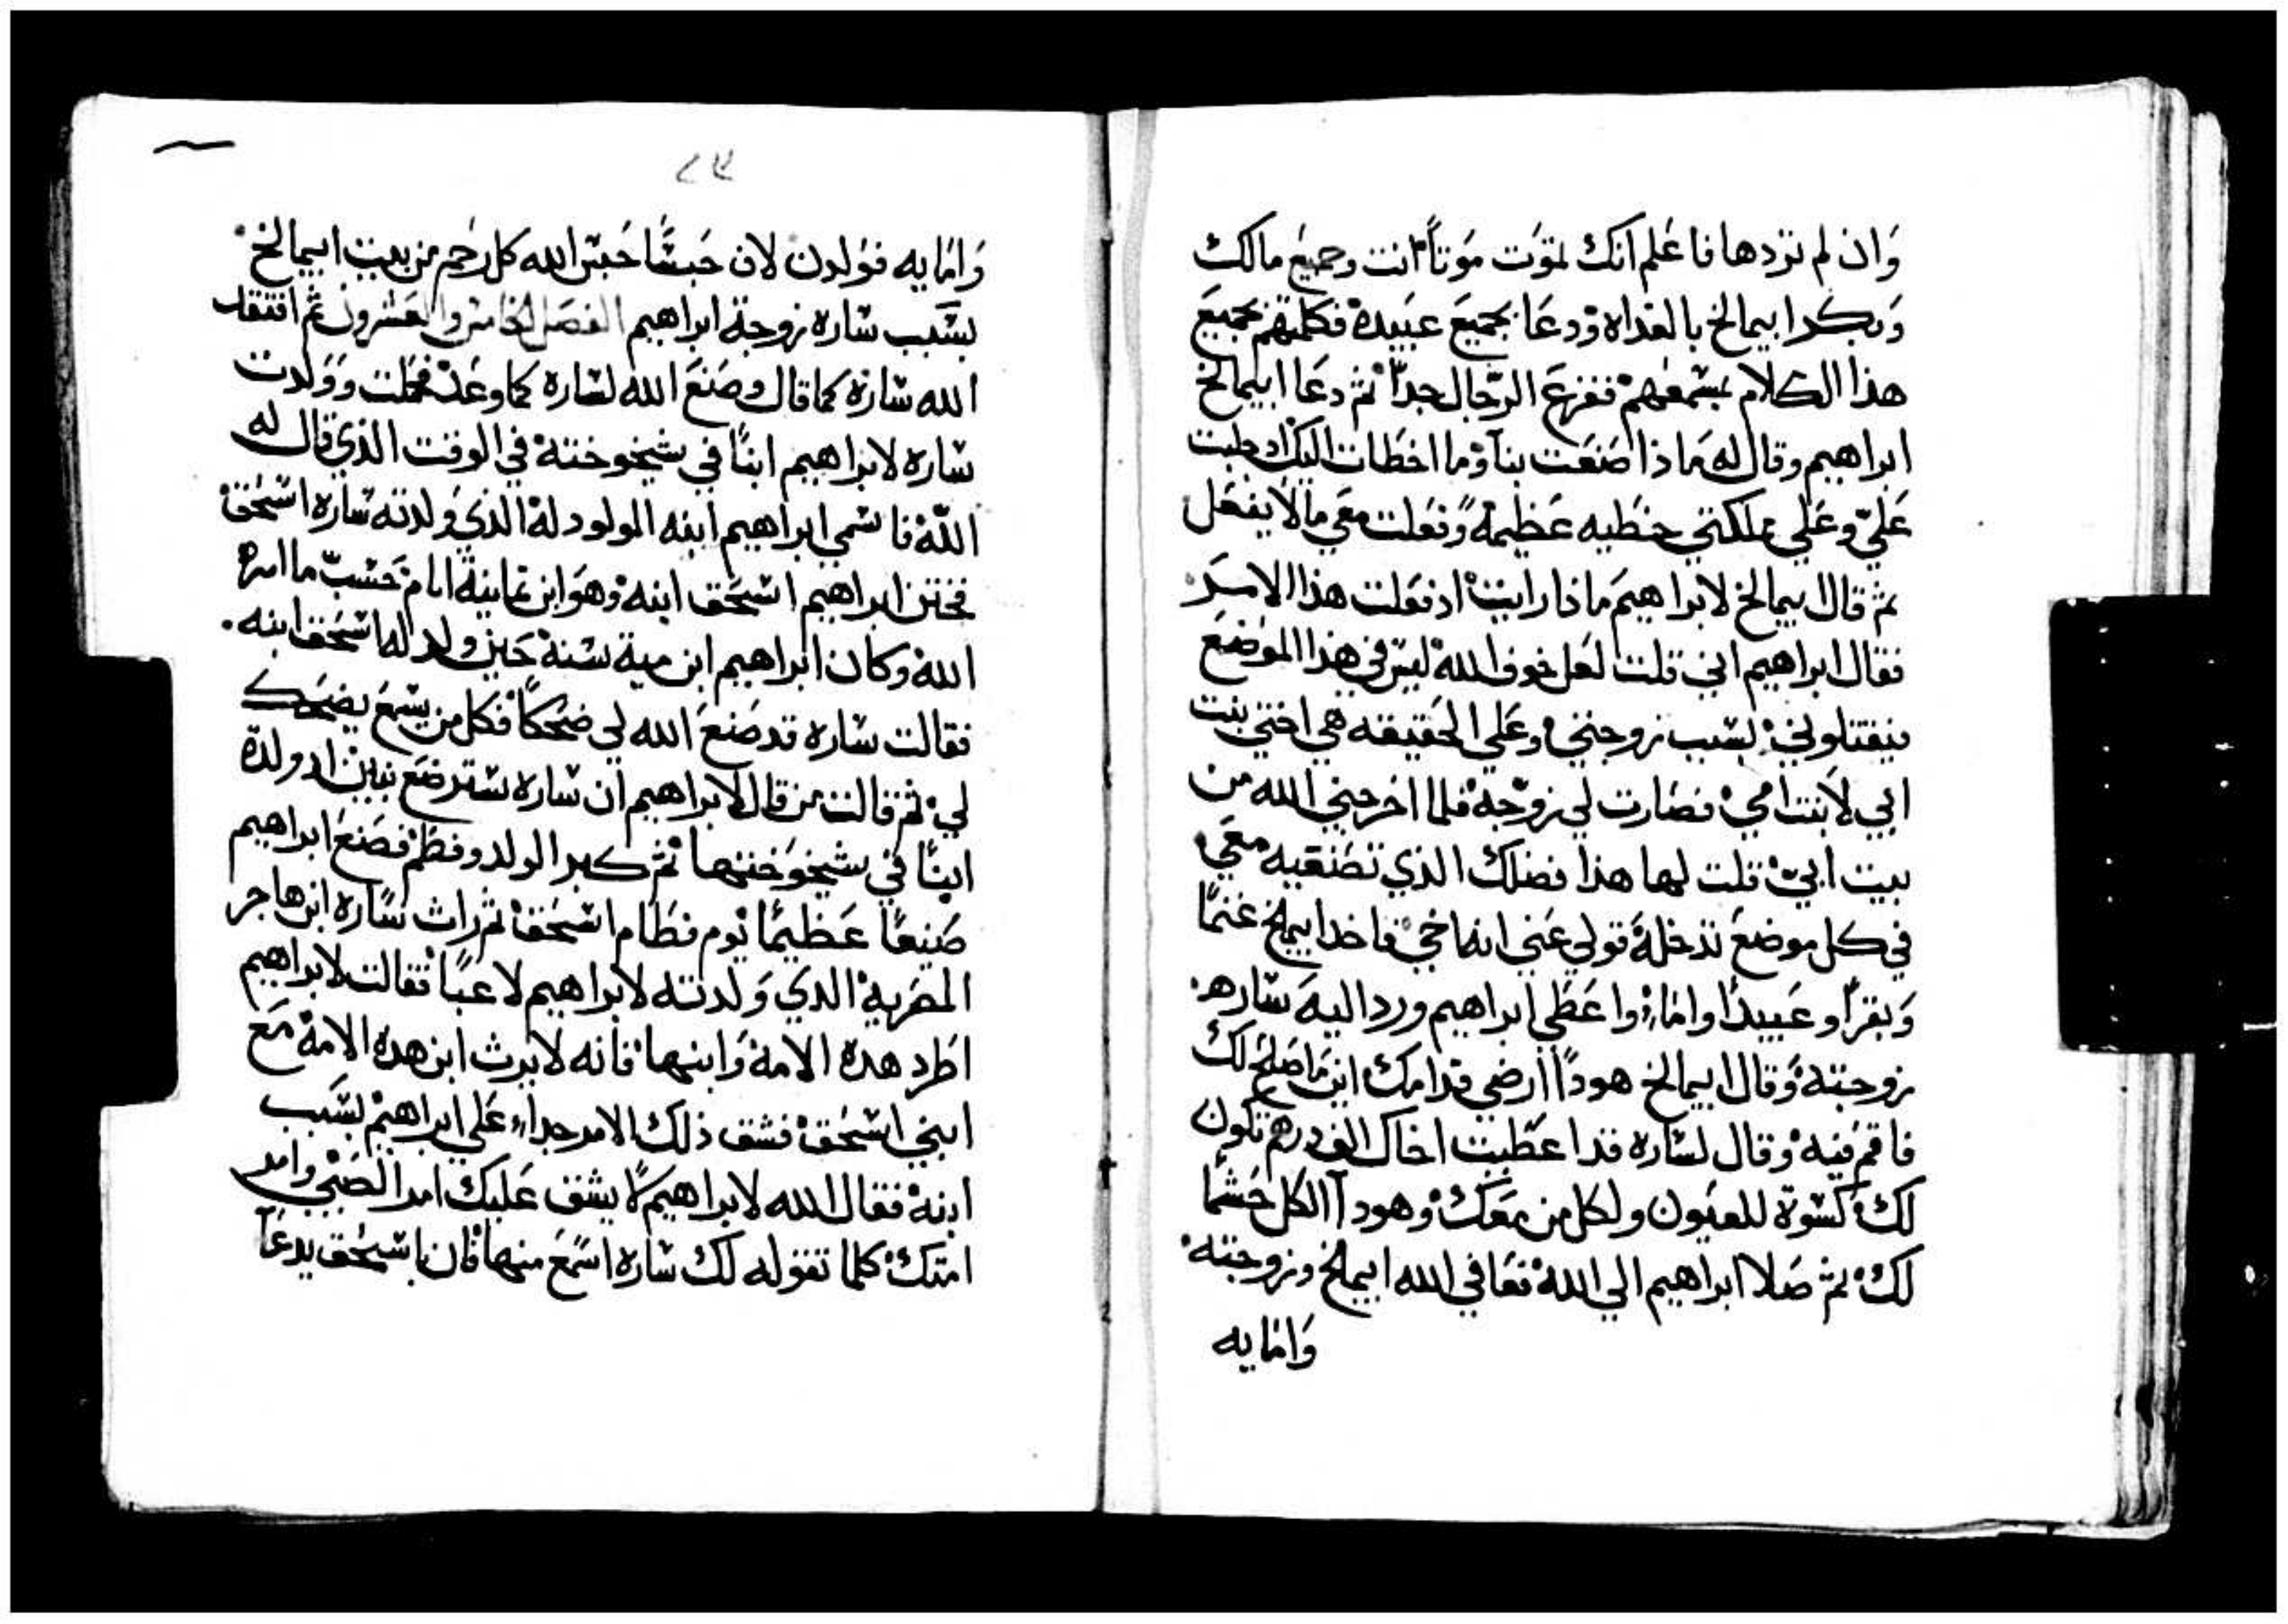 وَان لم تردها فاعَلم انك لتموَت مَوتاً انت وجميع مالك
وَبكر ابيمالخ بالغداه وْدعَا بجميَع عبَيده فكلمهْم بجميَع
هذا الكلام بمسْمعهمْ ففزعَ الرّجال جداً ثم دعَا ابيمالخ
ابراهيم وقال له مَاذا صَنعَت بنا وْما اخطات اليك اد جلبت
عَليّ وعَلي مملكتي خطيه عَظيمة وَفعَلت معَي مالا يفعَل
ثم قال ابيمالخ لابراهيمَ ماذا رايت اذ فعَلت هذا الامرَ
فقال ابراهيم اني قلت لعَل خوف اللهْ ليسَ في هذا الموَضعَ
فيقتلوني بسَبب زوجتي وعَلي الحَقيقه هي اختي بنت
ابي لابنت امي فصَارت لي زوَجة فلما اخرجني الله من
بيت ابي قلت لها هذا فضلك الذي تصَنعَيه معَي
في كل موضعَ ندخلهَ قولي عَني انه اخي فاخد ابيملخ غنماً
وَبقراً وعَبيداً واماءً واعَطي ابراهيم ورد اليهَ سَاره
زوجته وَقال ابيمالخ هودا ارضي قدامك اين ماصَلح لك
فاقم فيه وْقال لسَاره قد اعَطيت اخاك الف درهم تكون
لك كسَوة للعيَون ولكل من معَك وْهودا الكل حَشماً
لك ثم صَلا ابراهيم الي اللهْ فعَافي الله ابيملخ وزوجته
وَامايه
٢٣
وَامَايه فوَلدن لان حَبسَاً حَبسَ الله كل رَحم من بيت ابيمالخ
بسَبب سَاره زوجة ابراهيم الفصَل الخامسَ والعَشرون ثم افتقد
الله سَارهْ كما قال وصَنعَ الله لسَاره كما وعَد فحملت وَولدت
سَاره لابراهيم ابناً في شيخوخته في الوقت الذي قال له
اللّه فاسَمي ابراهيم ابنه المولود له الذي ولدته سَاره اسَحَق
فختن ابراهيم اسَحَق ابنه وْهوَ ابن ثمانية ايام حَسَبّ ما امره
اللهْ وكان ابراهيم ابن مية سَنةْ حَين ولد له اسَحَق ابنه
فقالت سَاره قد صَنعَ الله لي ضحَكاً فكل من يسَمعَ يضحَك
لي ثم قالت من قال لابراهيم ان سَاره سَترضعَ بنين اد ولدة
ابناً في شيخوَختها ثم كبر الولد وفطم فصَنعَ ابراهيم
صَنيعاً عَظيماً يوم فطام اسَحَق ثم رات سَاره ابن هاجر
المصَريه الدي وَلدته لابراهيم لاعباً فقالت لابراهيم
اطَرد هده الامة وَابنها فانه لايرث ابن هده الامة مَع
ابني اسَحَق فشق ذلك الامر جداً عَلي ابراهيمْ بسَبب
ابنهْ فقال الله لابراهيم لا يشق عَليك امر الصَبي وامر
امتك كلما تقوله لك سَاره اسَمعَ منها فان باسَحَق يدعَا